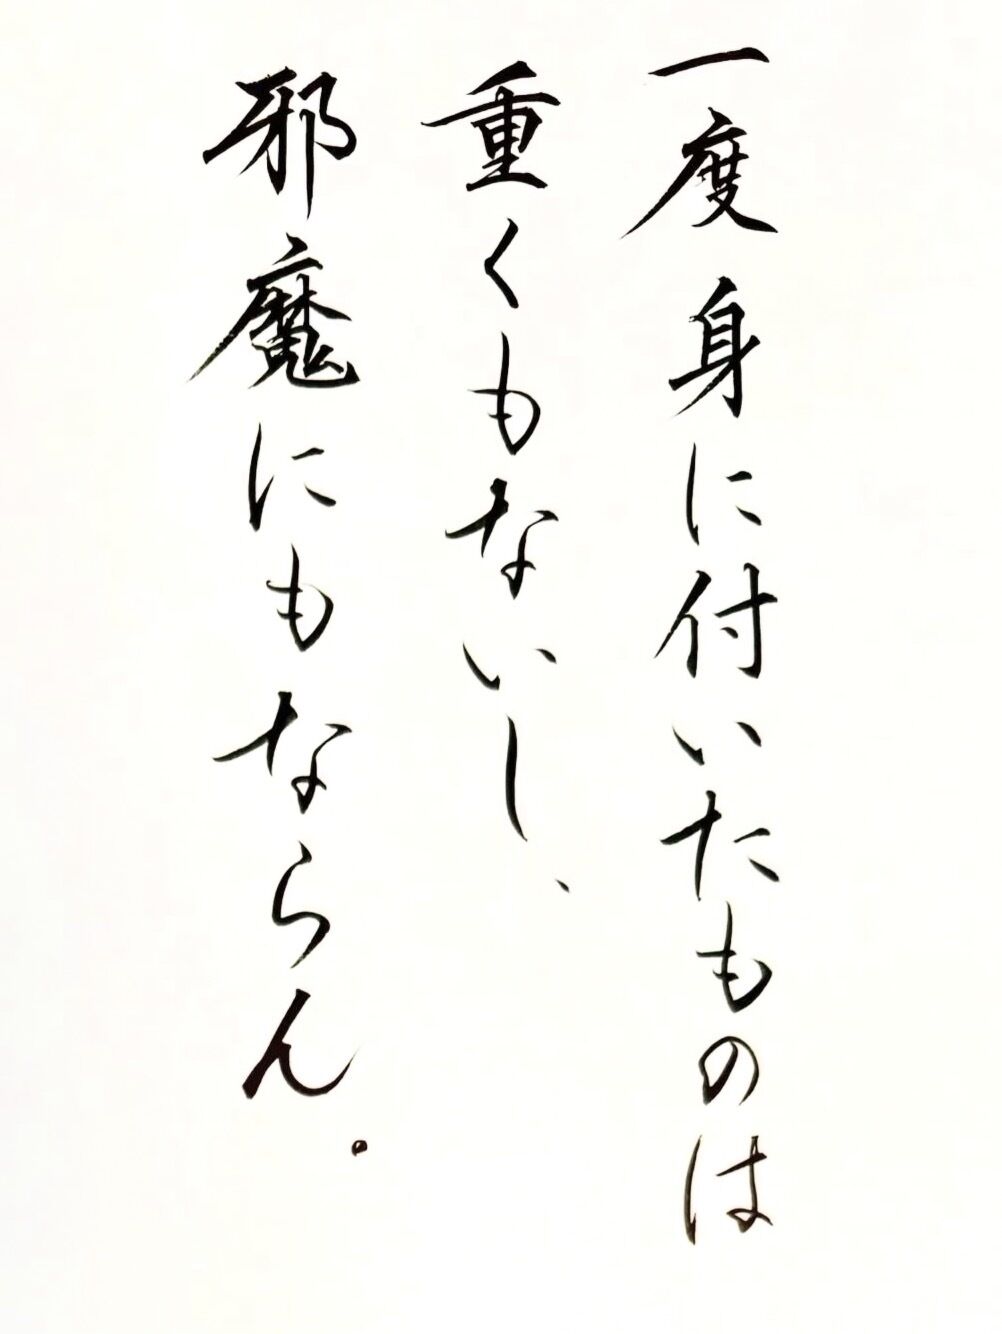 一度身に付いたものは
重くもないし、
邪魔にもならん。